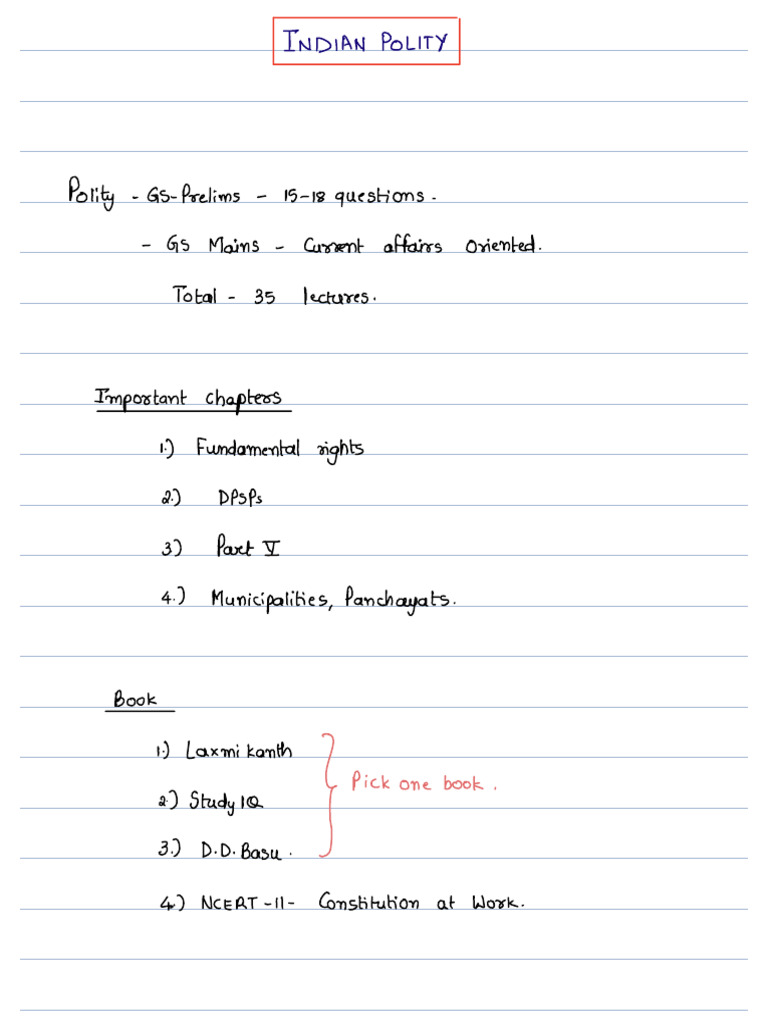 INDIAN POLITY
Polity - GS-Prelims - 15-18 questions.
- GS Mains - Current affairs Oriented.
Total - 35 lectures.
Important chapters
1.) Fundamental rights
2.) DPSPs
3) Part V
4.) Municipalities, Panchayats.
Book
1.) Laxmi kanth
2.) Study IQ
Pick one book.
3.) D.D. Basu.
4.) NCERT -11- Constitution at Work.